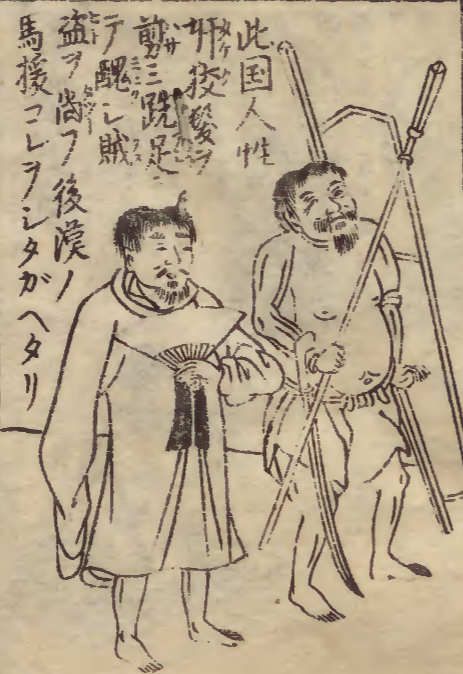 此国人性
奸狡髪ヲ
剪ミ跣足
テ醜シ賊
盗ヲ尚フ後漢ノ
馬援コレヲシタガヘタリ